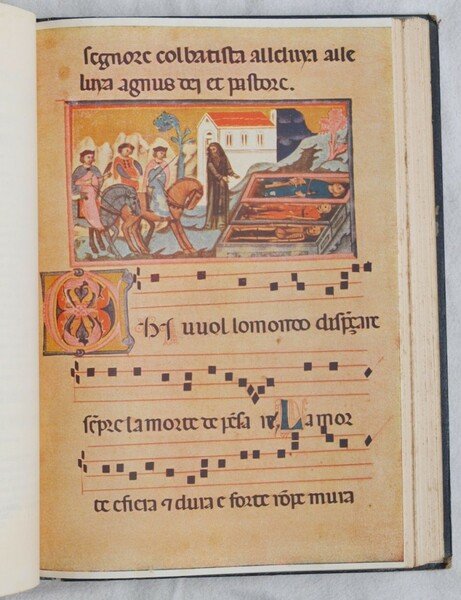 segnore colbatista alleluya alle
luya agnus dei et pastore.
Chi uuol lomondo disp̃çare
sẽpre la morte de pẽsa re, La mor
te efiera ⁊ dura e forte rõpe mura